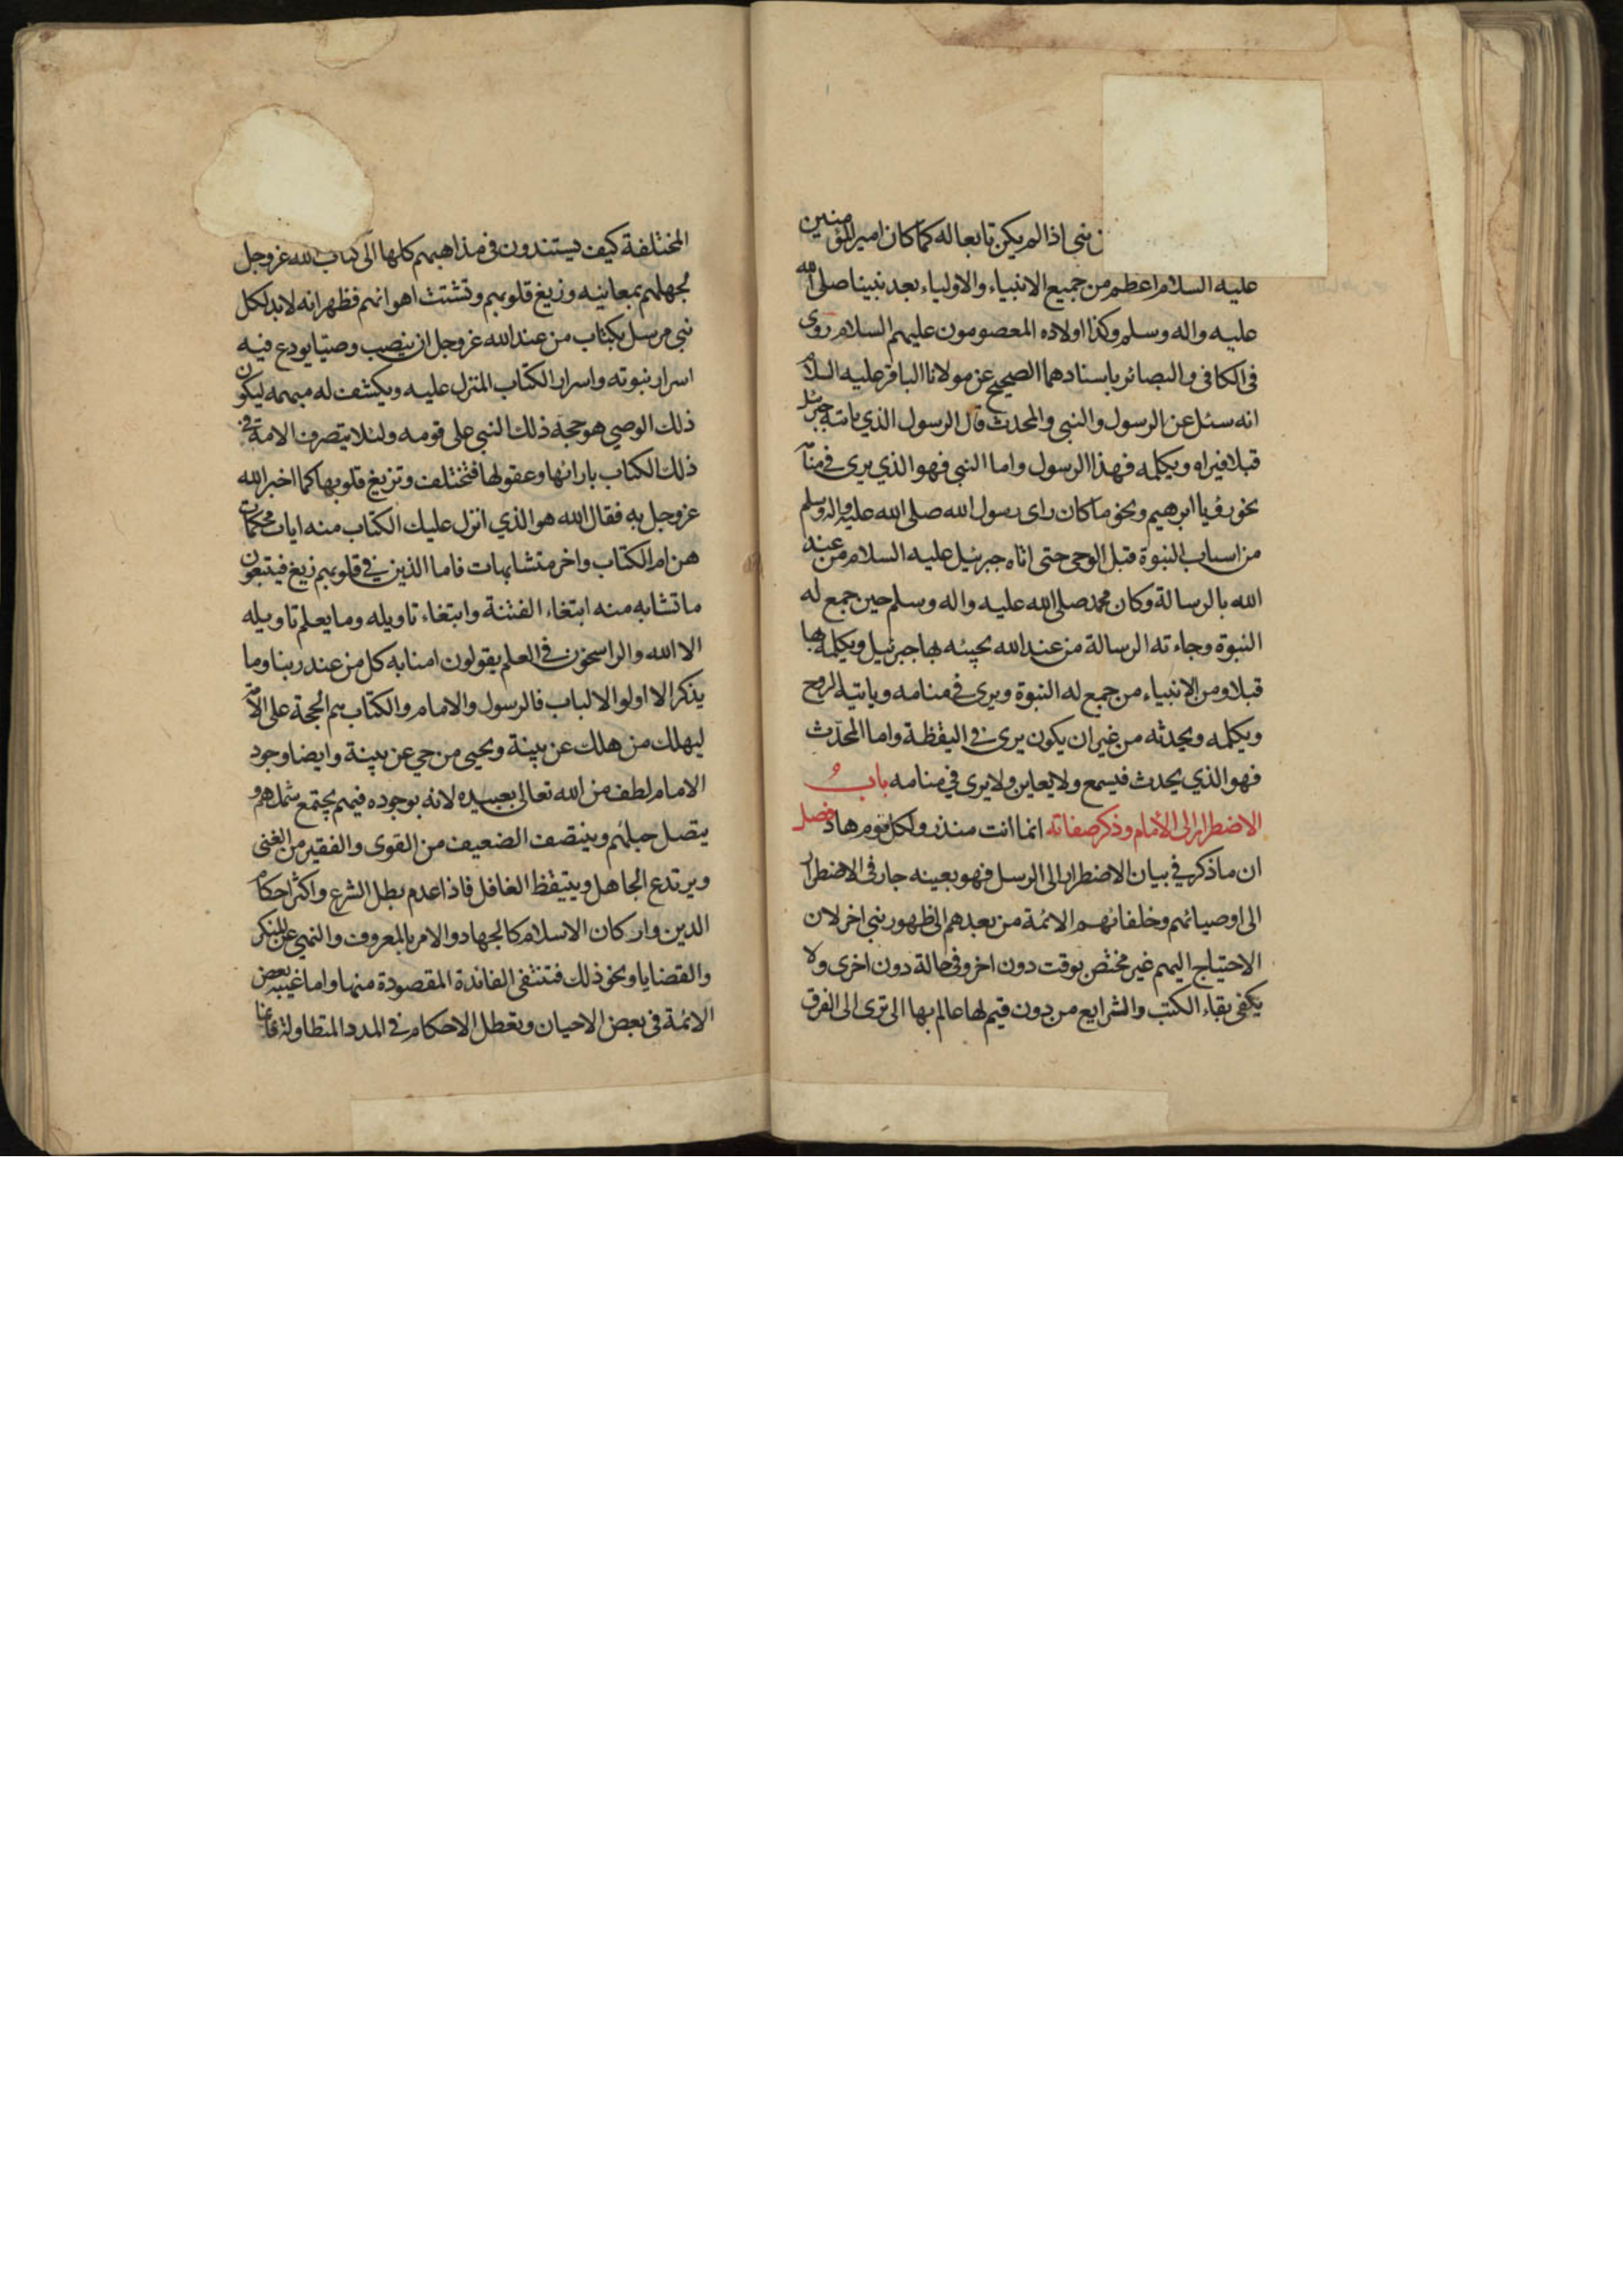 نبي اذا لم يكن تابعا له كما كان امير المؤمنين
عليه السلام اعظم من جميع الانبياء والاولياء بعد نبينا صلى الله
عليه واله وسلم وكذا اولاده المعصومون عليهم السلام روى
في الكافي والبصائر باسنادهما الصحيح عن مولانا الباقر عليه السلام
انه سئل عن الرسول والنبي والمحدث قال الرسول الذي ياتيه جبرئيل
قبلا فيراه ويكلمه فهذا الرسول واما النبي فهو الذي يرى في منامه
نحو رؤيا ابرهيم ونحو ما كان راى رسول الله صلى الله عليه واله وسلم
من اسباب النبوة قبل الوحى حتى اتاه جبرئيل عليه السلام من عند
الله بالرسالة وكان محمد صلى الله عليه واله وسلم حين جمع له
النبوة وجاءته الرسالة من عند الله يجيئه بها جبرئيل ويكلمه بها
قبلا ومن الانبياء من جمع له النبوة ويرى في منامه وياتيه الروح
ويكلمه ويحدثه من غير ان يكون يرى في اليقظة واما المحدث
فهو الذي يحدث فيسمع ولا يعاين ولا يرى في منامه باب
الاضطرار الى الامام وذكر صفاته انما انت منذر ولكل قوم هاد فصل
ان ما ذكر في بيان الاضطرار الى الرسل فهو بعينه جار في الاضطرار
الى اوصيائهم وخلفائهم الائمة من بعدهم الى ظهور نبي اخر لان
الاحتياج اليهم غير مختص بوقت دون اخر وفي حالة دون اخرى ولا
يكفي بقاء الكتب والشرايع من دون قيم لها عالم بها الا ترى الى الفرق
المختلفة كيف يستندون في مذاهبهم كلها الى كتاب الله عز وجل
لجهلهم بمعانيه وزيغ قلوبهم وتشتت اهوائهم فظهر انه لابد لكل
نبي مرسل بكتاب من عند الله عز وجل ان ينصب وصيا يودع فيه
اسرار نبوته واسرار الكتاب المنزل عليه ويكشف له مبهمه ليكون
ذلك الوصي هو حجة ذلك النبي على قومه ولئلا يتصرف الامة في
ذلك الكتاب بارائها وعقولها فتختلف وتزيغ قلوبها كما اخبر الله
عز وجل به فقال الله هو الذي انزل عليك الكتاب منه ايات محكمات
هن ام الكتاب واخر متشابهات فاما الذين في قلوبهم زيغ فيتبعون
ما تشابه منه ابتغاء الفتنة وابتغاء تاويله وما يعلم تاويله
الا الله والراسخون في العلم يقولون امنا به كل من عند ربنا وما
يذكر الا اولوا الالباب فالرسول والامام والكتاب هم الحجة على الامة
ليهلك من هلك عن بينة ويحيى من حي عن بينة وايضا وجود
الامام لطف من الله تعالى بعبيده لانه بوجوده فيهم يجتمع شملهم و
يتصل حبلهم وينتصف الضعيف من القوى والفقير من الغنى
ويرتدع الجاهل ويتيقظ الغافل فاذا عدم بطل الشرع واكثر احكام
الدين واركان الاسلام كالجهاد والامر بالمعروف والنهي عن المنكر
والقضايا ونحو ذلك فتنتفى الفائدة المقصودة منها واما غيبة بعض
الائمة في بعض الاحيان وتعطل الاحكام في المدد المتطاولة فانما